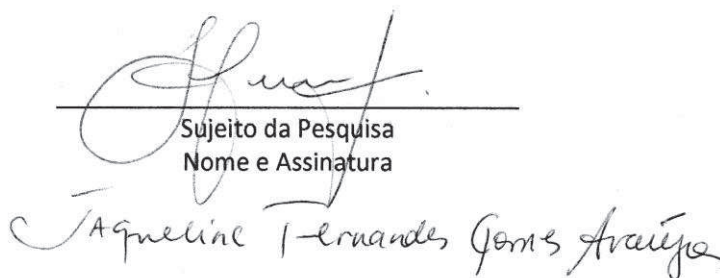 Sujeito da Pesquisa
Nome e Assinatura
Jaqueline Fernandes Gomes Araújo